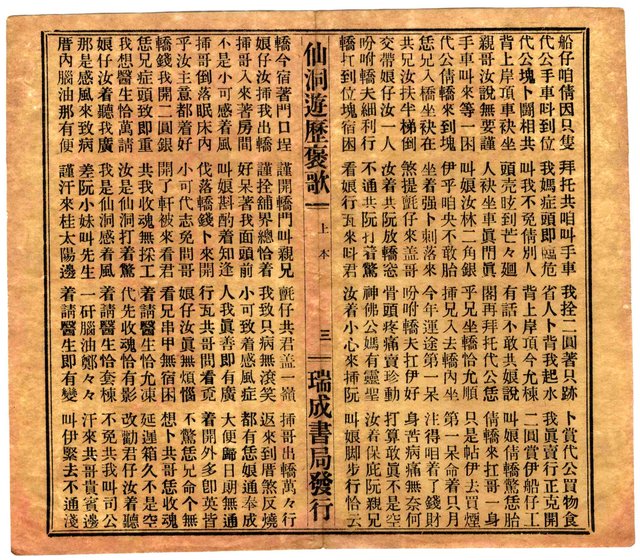 船仔咱倩因只隻 拜托共咱叫手車 我拴二圓著只跡 卜賞代公買物食
代公手車叫到位 我媽症頭即臨危 省人卜背我起水 我眞賣行正克開
代公塊卜鬪相共 叫我不免倩別人 背上岸頂今允棟 二圓賞伊船仔工
背上岸頂車袂坐 頭壳眩到芒々廻 有話不敢共娘說 叫娘倩轎驚恁胎
親哥汝說無要謹 人袂坐車眞門眞 閣再拜托代公恁 倩轎來扛哥一身
手車叫來等一困 叫娘汝林二角銀 乎兄坐轎恰允順 只是帖伊去買煙
代公倩轎來到塊 伊乎咱央不敢胎 挿兄入去轎內坐 第一呆命着只月
恁兄入轎坐袂在 坐着强卜刺落來 今年運途第一呆 注得咱着了錢財
共兄汝扶坐梯倒 煞提氈仔來蓋哥 吩咐轎夫扛伊好 身苦病痛無奈何
交帶娘仔汝一人 汝着共阮放轎窓 骨頭疼痛賣珍動 打算敢眞不是空
吩咐轎夫細利行 不通共阮打着驚 神佛公媽有靈聖 汝着保庇阮親兄
轎扛到位塊宿困 看娘行瓦來叫君 汝着小心來挿阮 叫娘脚步行恰云
仙洞遊歷褒歌 上本 三 瑞成書局發行
轎今宿著門口埕 謹開轎門叫親兄 氈仔共君蓋一嶺 挿哥出轎萬々行
娘仔汝挿我出轎 謹拴舖界總恰着 我致只病無滾笑 返來到厝煞反燒
挿哥入來著房間 好呆著我面頭前 小可致着感風症 都有恁娘通奉成
不是小可感着風 叫娘斟酌着知逢 人我眞善即有廣 大便歸日朗無通
挿哥倒落眠床內 伐落轎錢卜來開 行瓦共哥問看覓 着開外多卽英皆
乎汝主意都着好 小可代志免問哥 娘仔汝眞無煩惱 不驚恁兄命不和
轎錢我開二圓銀 開了軒被來看君 看兄串甲無宿困 想卜共哥恁收魂
恁兄症頭致即重 共我收魂無採工 着請醫生恰允棟 延遲箱久不是空
我想醫生恰萬請 汝是仙洞打着驚 代先收魂恰有影 改勸君仔汝着聽
娘仔汝着聽我廣 我是仙洞感着風 着請醫生恰套棟 不免共我叫司公
那是感風來致病 差阮小妹叫先生 一矸腦油鄭々々 汗來共哥貴賓邊
厝內腦油那有便 謹汗來桂太陽邊 着請醫生即有變 叫伊緊去不通淺